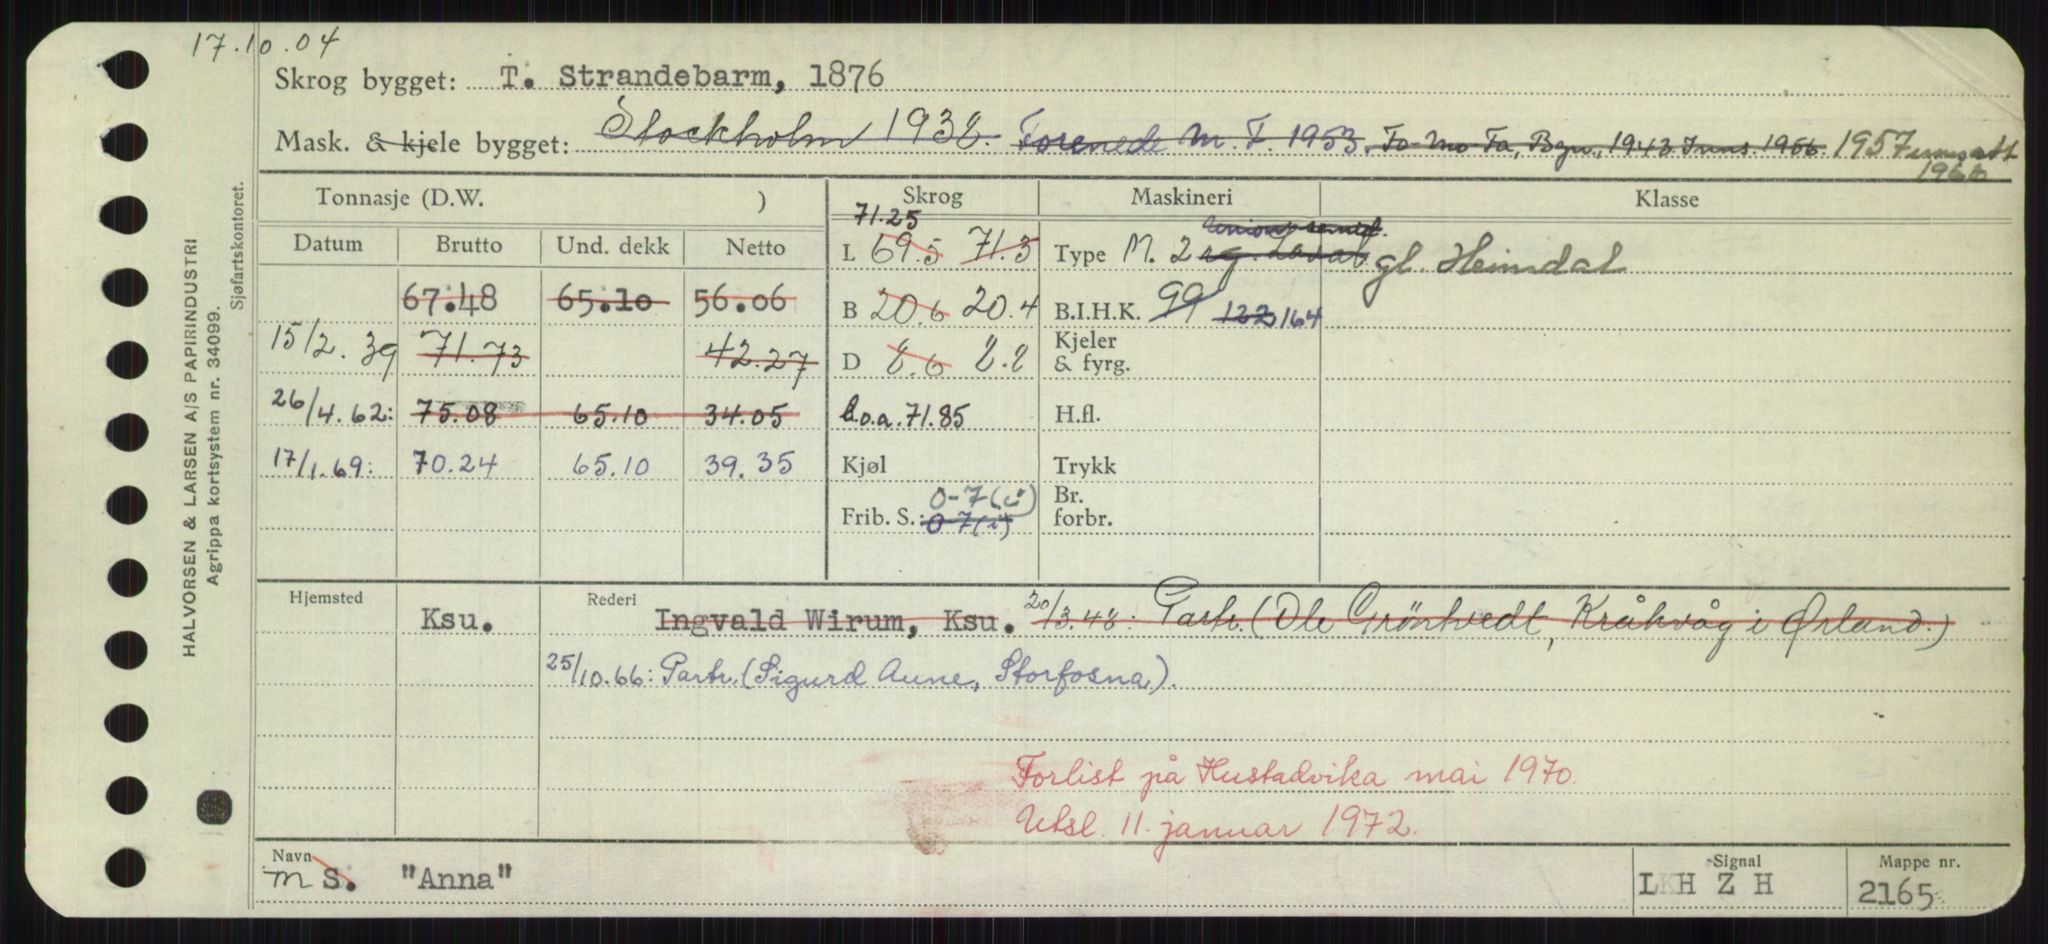 17.10.04
Skrog bygget: T. Strandebarm, 1876
Mask. & kjele bygget: Stockholm 1938. Forenede M.F. 1953. Fo-Mo-Fa, Bgn., 1943 Inns. 1956. 1957 innsatt 1966
Tonnasje (D.W. ) Skrog Maskineri Klasse
Datum Brutto Und. dekk Netto
71.25
L 69.5 71.3 Type M. 2 gl. Heimdal
67.48 65.10 56.06 B 20.6 20.4 B.I.H.K. 99 122 164
15/2.39 71.73 42.27 D 8.6 8.8 Kjeler & fyrg.
26/4.62: 75.08 65.10 34.05 L.o.a. 71.85 H.fl.
17/1.69: 70.24 65.10 39.35 Kjøl Trykk
Frib. S.: 0-7(i) 0-7(i) Br. forbr.
Hjemsted Ksu. Rederi Ingvald Wirum, Ksu. 20/3.48: Partr. (Ole Grönhvedt, Kråkvåg i Ørland.)
25/10.66: Partr. (Sigurd Aune, Storfosna).
Forlist på Hustadvika mai 1970.
Utsl. 11. januar 1972.
Navn Signal Mappe nr.
m S. "Anna" LKH Z H 2165
HALVORSEN & LARSEN A/S PAPIRINDUSTRI
Agrippa kortsystem nr. 34099.
Sjøfartskontoret.